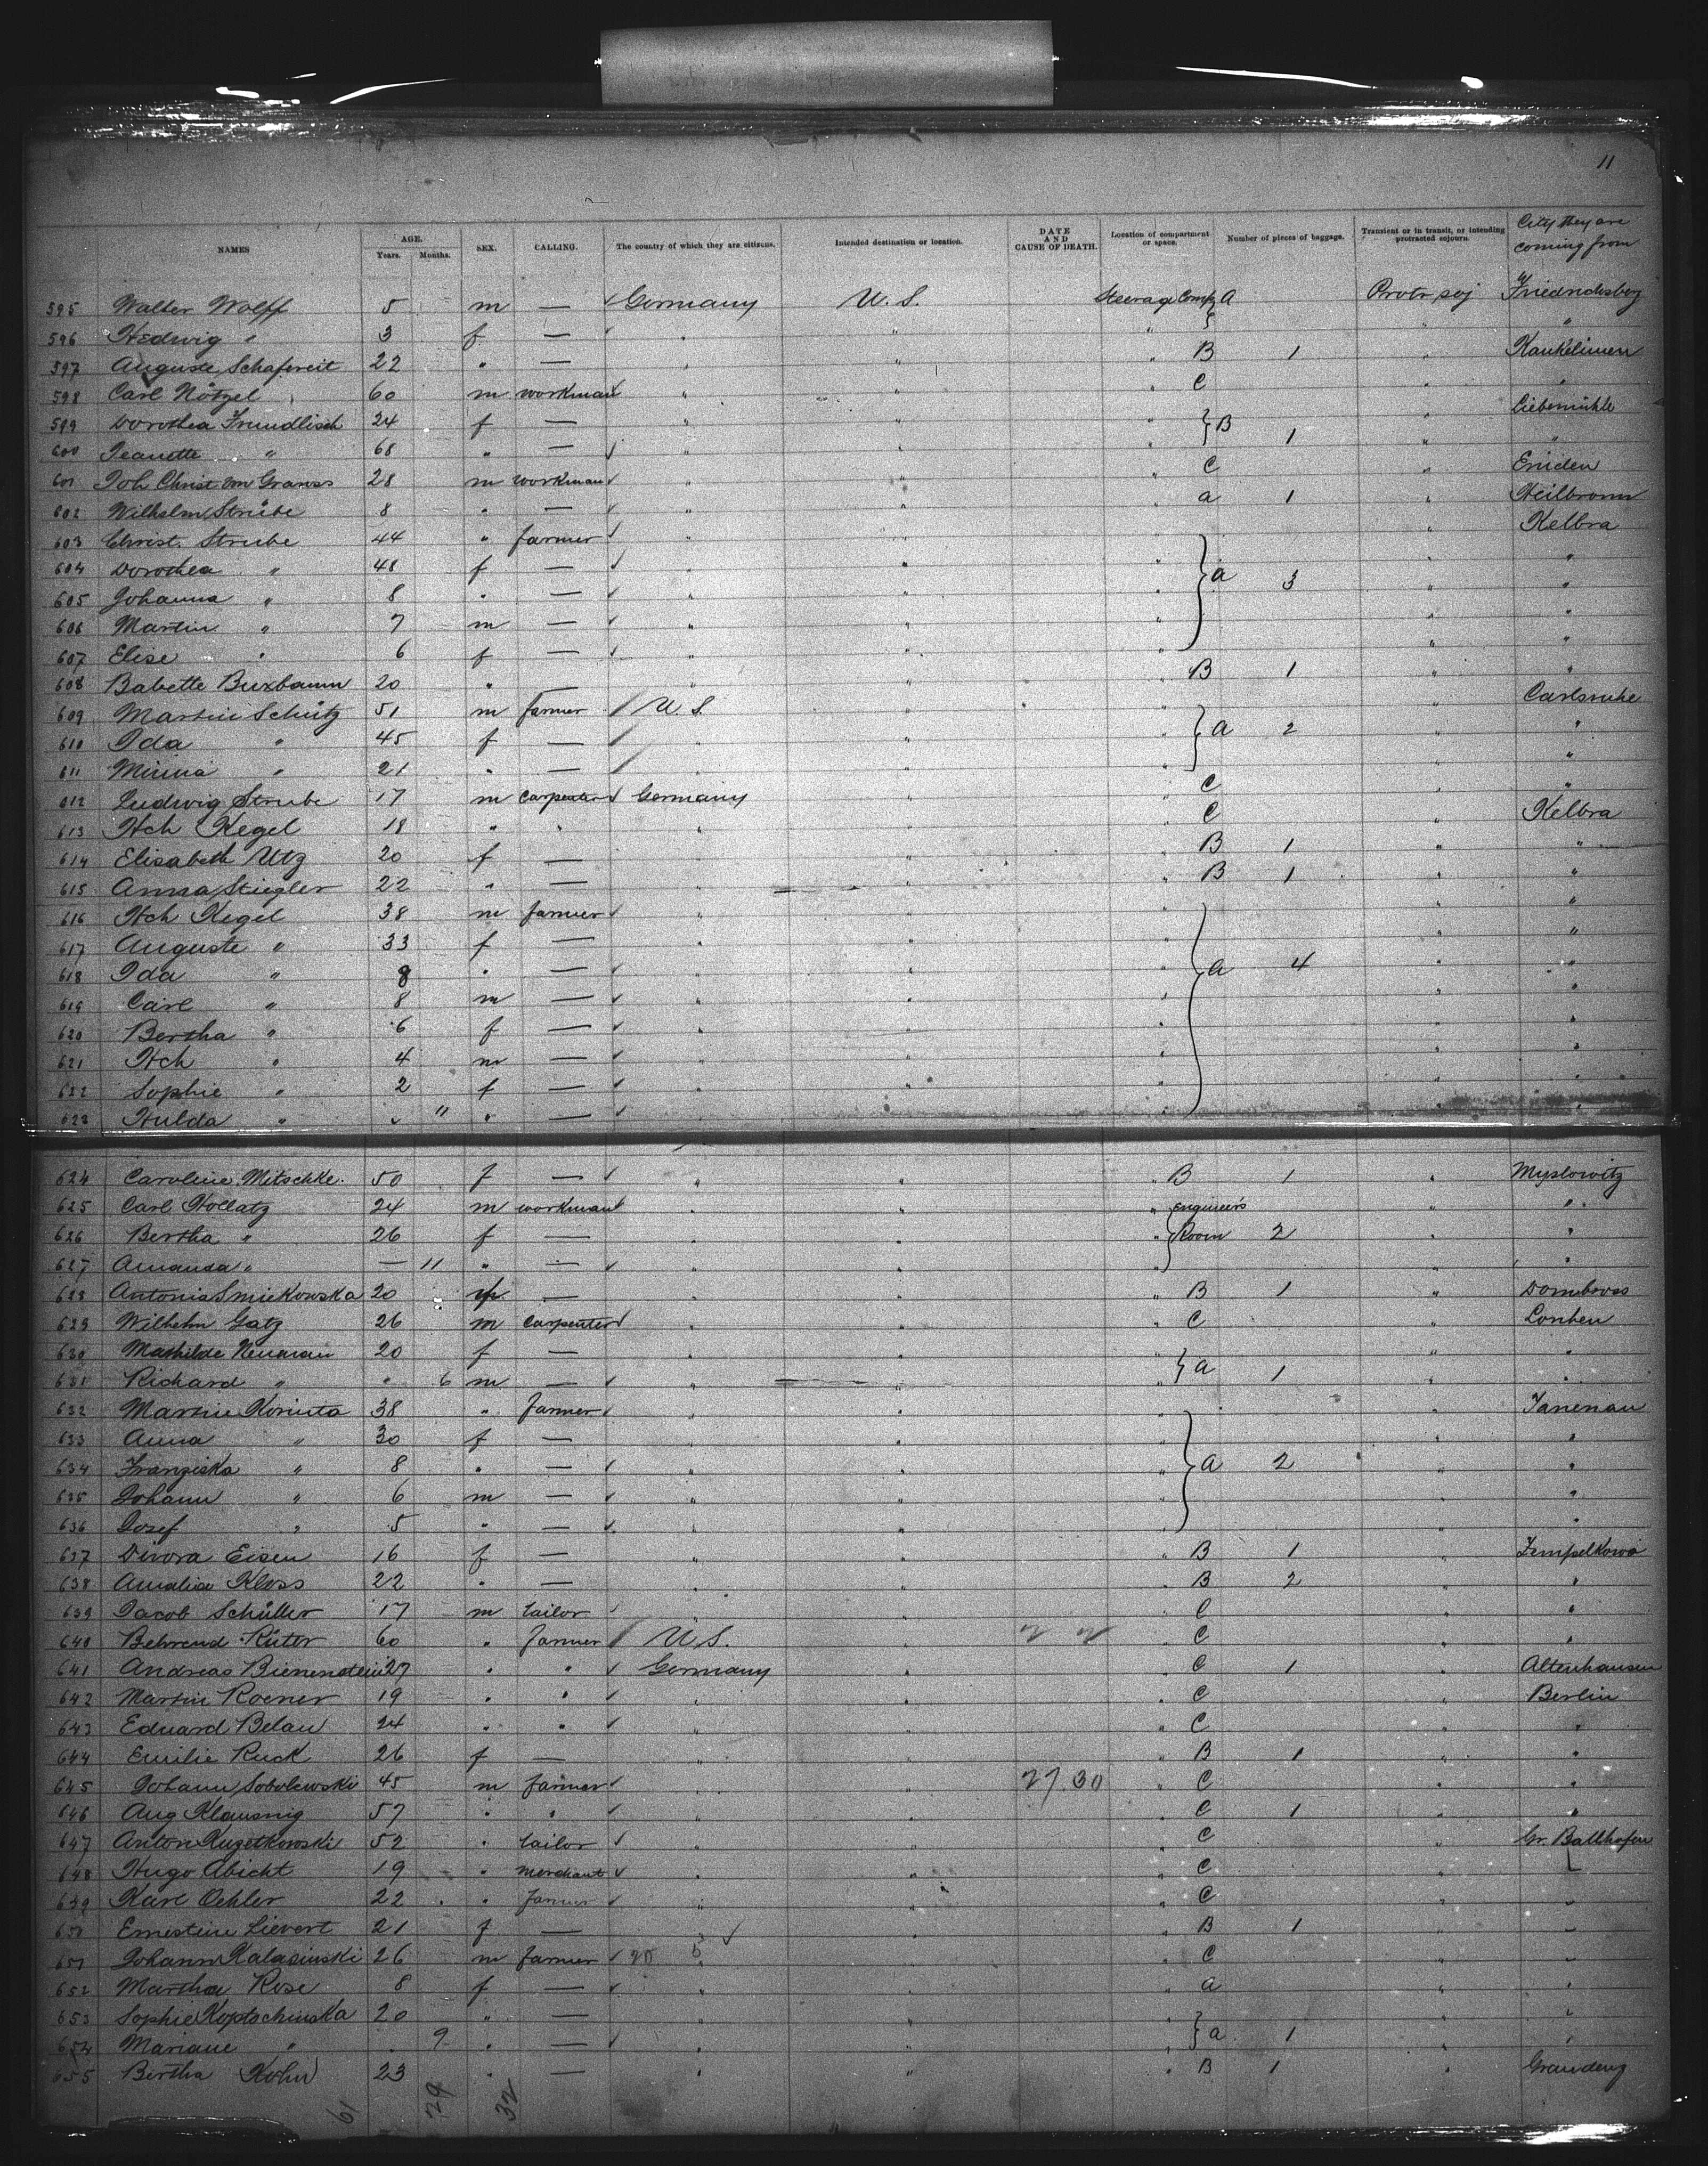 11
NAMES AGE. Years. Months. SEX. CALLING. The country of which they are citizens. Intended destination or location. DATE AND CAUSE OF DEATH. Location of compartment or space. Number of pieces of baggage. Transient or in transit, or intending protracted sojourn. City they are coming from
595 Walter Wolff 5 m — Germany U. S. Steerage Comp A Protr soj Friedrichsberg
596 Hedwig " 3 f — " " " " "
597 Auguste Schafereit 22 " — " " " B 1 " Kaukelimen
598 Carl Nötzel 60 m workman " " " C " "
599 Dorothea Frundlisch 24 f — " " " B " Liebemühle
600 Jeanette " 68 " — " " " 1 " "
601 Joh Christ Em Granss 28 m workman " " " C " Emden
602 Wilhelm Strübe 8 " — " " " a 1 Heilbronn
603 Christ. Strube 44 " farmer " " " " Kelbra
604 Dorothea " 48 f — " " " a 3 " "
605 Johanna " 8 " — " " " " "
606 Martin " 7 m — " " " " "
607 Elise " 6 f — " " " " "
608 Babette Buxbaum 20 " — " " " B 1 " "
609 Martin Schütz 51 m farmer U. S. " " " Carlsruhe
610 Ida " 45 f — " " " A 2 " "
611 Minna " 21 " — " " " " "
612 Ludwig Strube 17 m carpenter Germany " " C " "
613 Hch Kegel 18 " " " " " C " Kelbra
614 Elisabeth Utz 20 f — " " " B 1 " "
615 Anna Stiegler 22 " — " " " B 1 " "
616 Hch Kegel 38 m farmer " " " " "
617 Auguste " 33 f — " " " " "
618 Ida " 8 " — " " " a 4 " "
619 Carl " 8 m — " " " " "
620 Bertha " 6 f — " " " " "
621 Hch " 4 m — " " " " "
622 Sophie " 2 f — " " " " "
623 Hulda " " 11 " — " " " " "
624 Caroline Mitschke 50 f — " " " B 1 " Myslowitz
625 Carl Hollatz 24 m workman " " " engineers " "
626 Bertha " 26 f — " " " Room 2 " "
627 Amanda " — 11 " — " " " " "
628 Antonia Smiekowska 20 f — " " " B 1 " Dombross
629 Wilhelm Gatz 26 m carpenter " " " C " Lonken
630 Mathilde Neuman 20 f — " " " a " "
631 Richard " " 6 m — " " " 1 " "
632 Martin Korinta 38 " farmer " " " " Janenau
633 Anna " 30 f — " " " " "
634 Franziska " 8 " — " " " a 2 " "
635 Johann " 6 m — " " " " "
636 Josef " 5 " — " " " " "
637 Divora Eisen 16 f — " " " B 1 " Zempelkowo
638 Amalia Kloss 22 " — " " " B 2 " "
639 Jacob Schüller 17 m tailor " " " C " "
640 Behrend Rüter 60 " farmer U. S. " " C " "
641 Andreas Bienenstein 27 " " Germany " " C 1 " Altenhausen
642 Martin Roener 19 " " " " " C " Berlin
643 Eduard Belau 24 " " " " " C " "
644 Emilie Ruck 26 f — " " " B 1 " "
645 Johann Sobolewski 45 m farmer " " 27 30 " C " "
646 Aug Klausnig 57 " " " " " C 1 " "
647 Anton Kuzetkowski 52 " tailor " " " C " Gr. Ballhofen
648 Hugo Abicht 19 " merchant " " " C "
649 Karl Oehler 22 " farmer " " " C " "
650 Ernestine Lievert 21 f — " " " B 1 " "
651 Johann Kalasinski 26 m farmer " " " C " "
652 Martha Rose 8 f — " " " a " "
653 Sophie Koptschinska 20 " — " " " " "
654 Mariane " " 9 " — " " " a 1 " "
655 Bertha Kohn 23 " — " " " B 1 " Graudenz
61 29 32